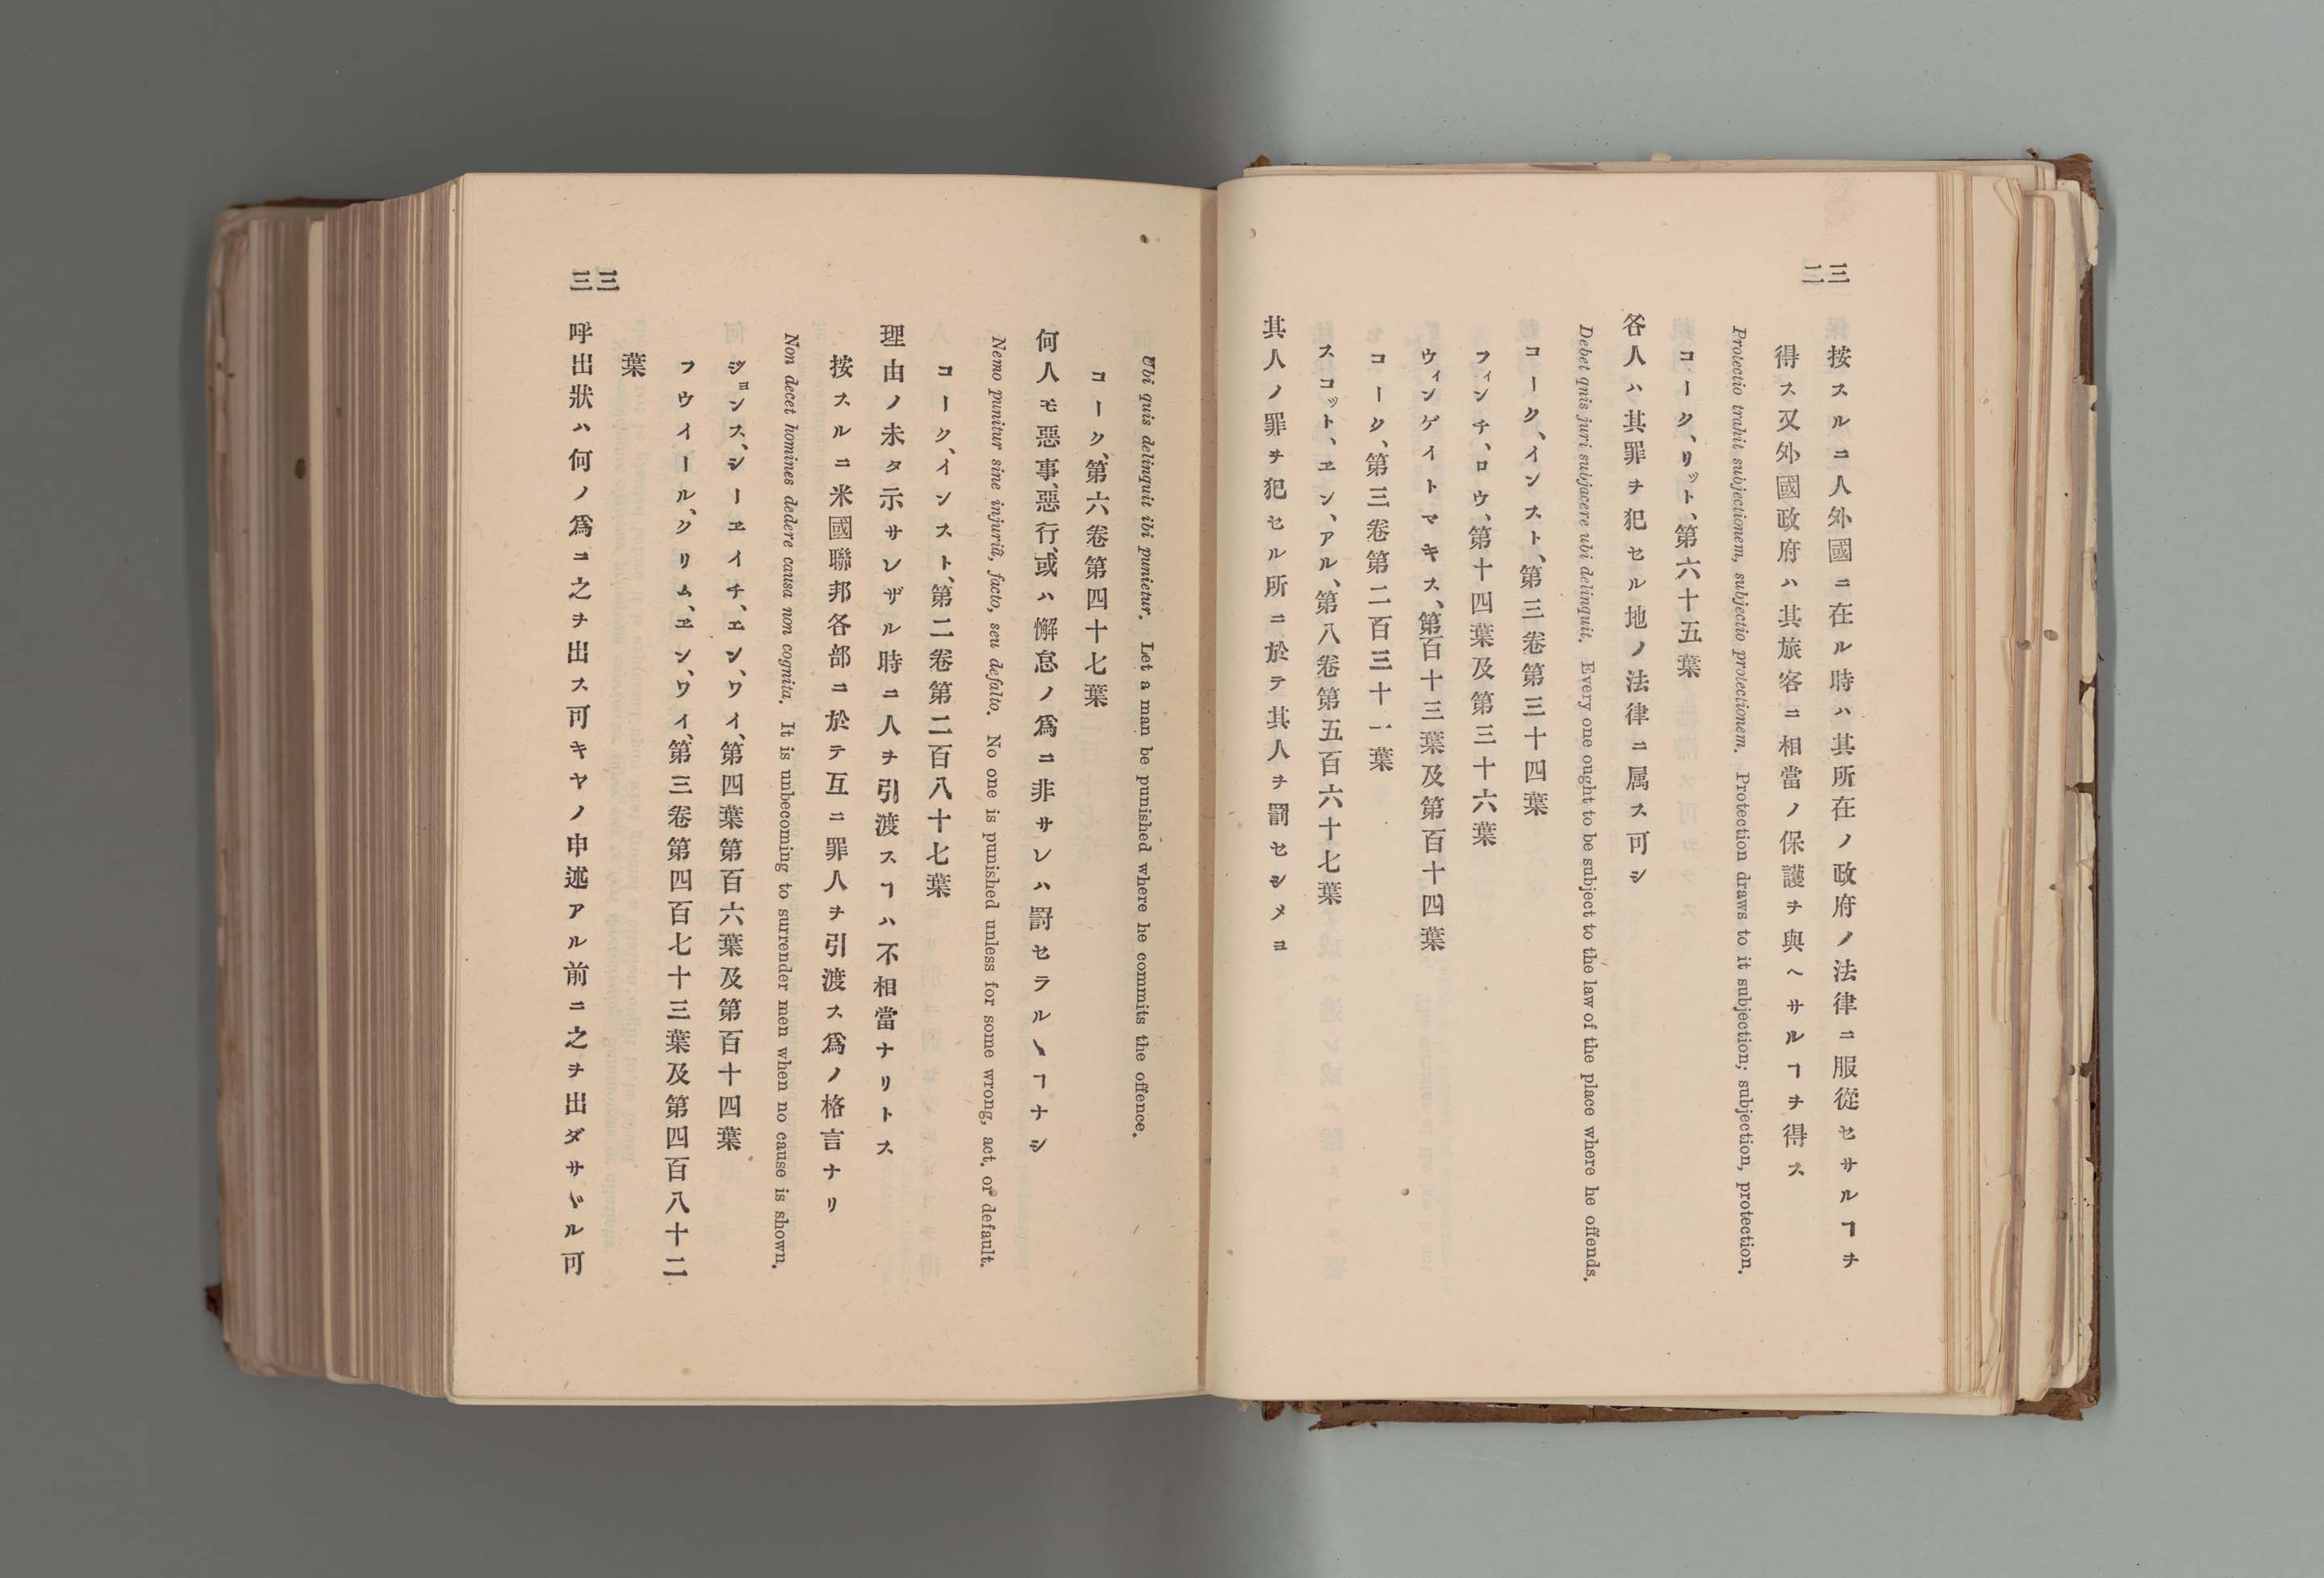 三二
按スルニ人外國ニ在ル時ハ其所在ノ政府ノ法律ニ服從セサルヿヲ
得ス又外國政府ハ其旅客ニ相當ノ保護ヲ與ヘサルヿヲ得ス
Protectio trahit subjectionem, subjectio protectionem. Protection draws to it subjection; subjection, protection.
コーク、リット、第六十五葉
各人ハ其罪ヲ犯セル地ノ法律ニ属ス可シ
Debet qnis juri subjacere ubi delinquit. Every one ought to be subject to the law of the place where he offends.
コーク、インスト、第三卷第三十四葉
フィンチ、ロウ、第十四葉及第三十六葉
ウィンゲイトマキス、第百十三葉及第百十四葉
コーク、第三卷第二百三十一葉
スコット、エン、アル、第八卷第五百六十七葉
其人ノ罪ヲ犯セル所ニ於テ其人ヲ罰セシメヨ
Ubi quis delinquit ibi punietur. Let a man be punished where he commits the offence.
コーク、第六卷第四十七葉
何人モ惡事、惡行、或ハ懈怠ノ爲ニ非サレハ罸セラルヽヿナシ
Nemo punitur sine injuriâ, facto, seu defalto. No one is punished unless for some wrong, act, or default.
コーク、インスト、第二卷第二百八十七葉
理由ノ未タ示サレザル時ニ人ヲ引渡スヿハ不相當ナリトス
按スルニ米國聯邦各部ニ於テ互ニ罪人ヲ引渡ス爲ノ格言ナリ
Non decet homines dedere causa non cognita. It is unbecoming to surrender men when no cause is shown.
ジョンス、シーエイチ、エン、ワイ、第四葉第百六葉及第百十四葉
フウイール、クリム、エン、ワイ、第三卷第四百七十三葉及第四百八十二
葉
呼出狀ハ何ノ爲ニ之ヲ出ス可キヤノ申述アル前ニ之ヲ出ダサヾル可
三三